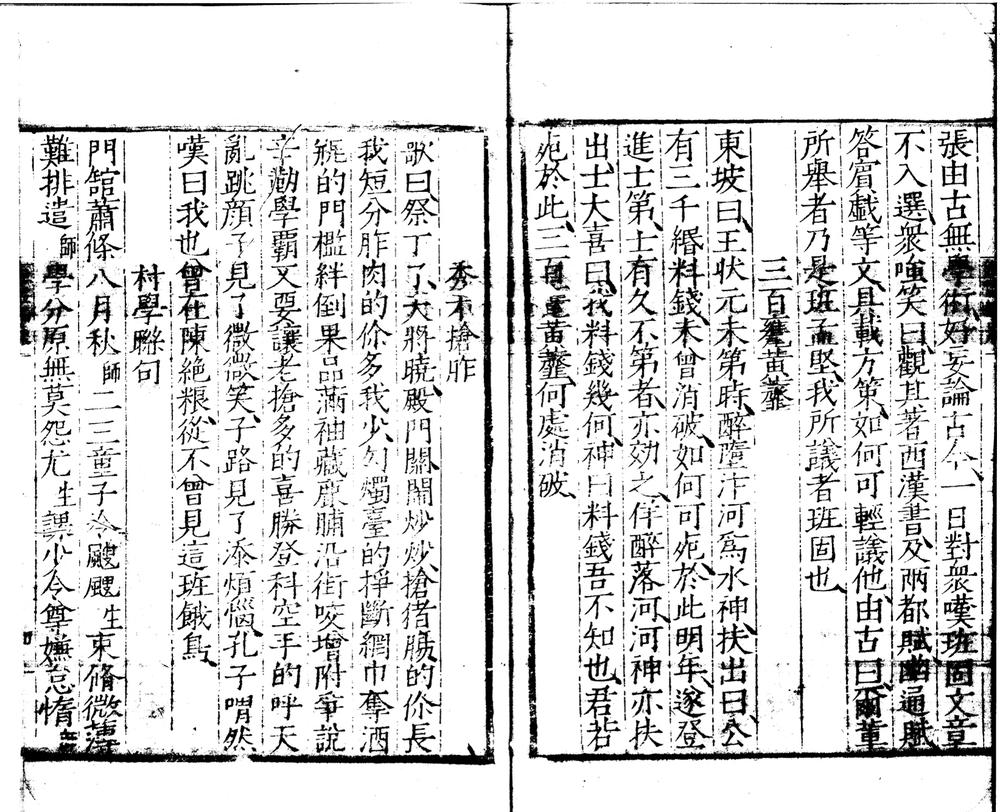 張由古無學術好妄論古今一日對衆嘆班固文章
不入選衆嗤笑曰觀其著西漢書及兩都賦幽通賦
答賓戱等文具載方第如何可輕議他由古曰爾董
所舉者乃是班孟堅我所議者班固也
三百甕黃虀
東坡曰王状元未第時醉墮汴河爲水神扶出曰公
有三千緡料錢未曾消破如何可死於此明年遂登
進士第士有久不第者亦効之佯醉落河河神亦扶
出士大喜曰我料錢幾何神曰料錢吾不知也君若
死於此三百甕黃虀何處消破
秀才搶胙
歌曰祭丁了天將曉殿門關鬧炒炒搶猪膓的你長
我短分胙肉的你多我少勾燭臺的掙斷網巾奪酒
瓶的門檻絆倒果品滿袖藏鹿脯沿街咬增附爭說
辛勤學覇又要讓老搶多的喜勝登科空手的呼天
亂跳顔子見了微微笑子路見了添煩惱孔子喟然
嘆曰我也曾在陳絶粮從不曾見這班餓鳥
村學聯句
門館蕭條八月秋師二三童子冷颼颼生束脩微薄
難排遣師學分原無莫怨尤生課少令尊嫌怠惰